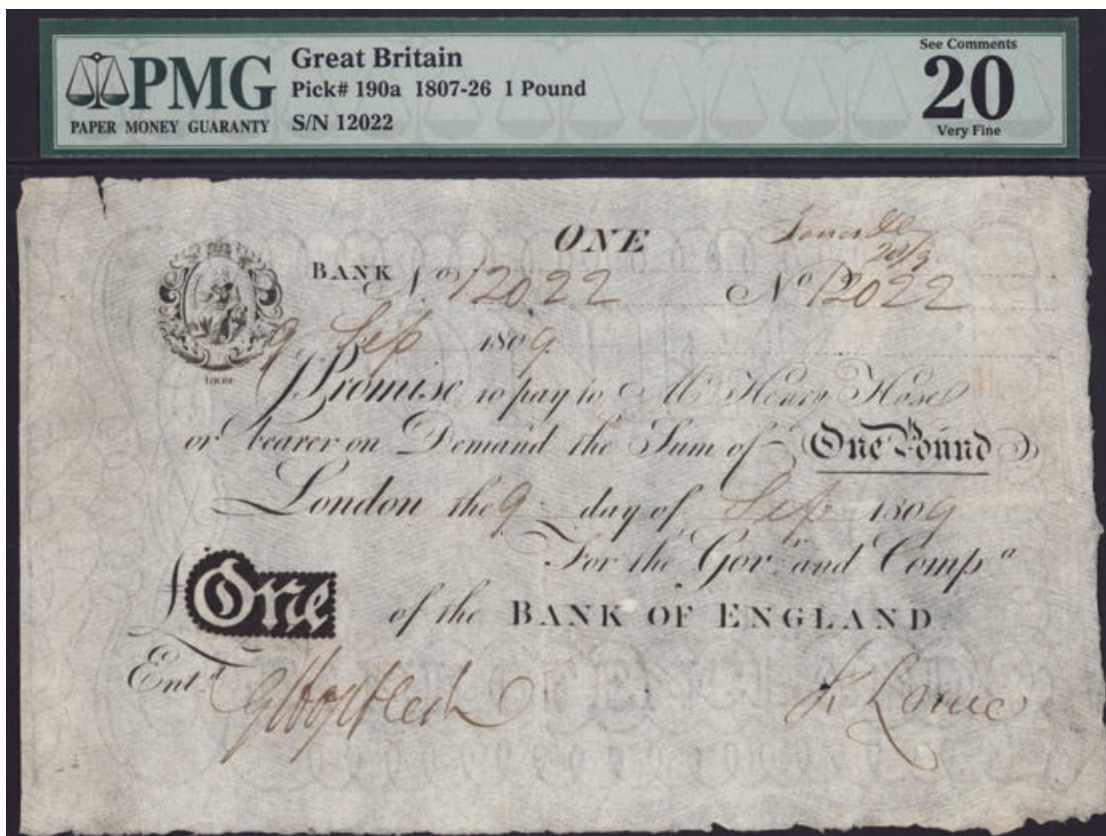 PMG
PAPER MONEY GUARANTY
Great Britain
Pick# 190a 1807-26 1 Pound
S/N 12022
See Comments
20
Very Fine
ONE
BANK No 12022 No 12022
9 Sep 1809
1809
I Promise to pay to Mr Henry Hase
or bearer on Demand the Sum of One Pound
London the 9 day of Sep 1809
For the Gov: and Compa
£One of the BANK OF ENGLAND
Entd